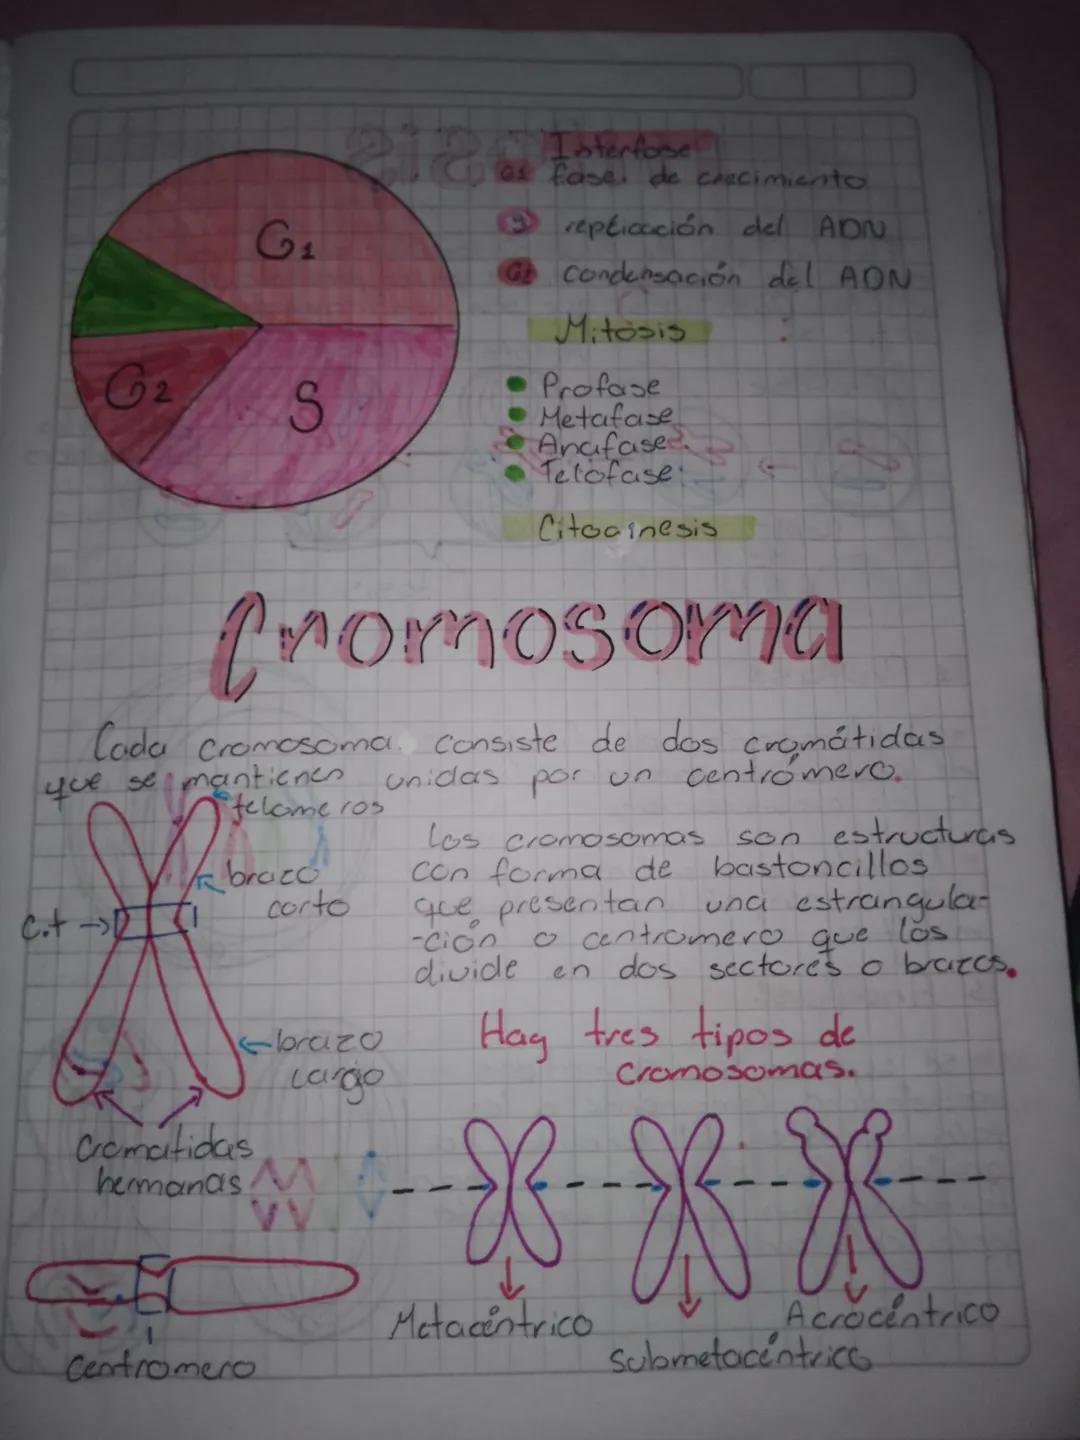 G1
G2
S
Interfase
G1 fase de crecimiento
S replicación del ADN
G2 condensación del ADN
Mitosis
Profase
Metafase
Anafase
Telofase
Citocinesis
Cromosoma
Cada cromosoma consiste de dos cromátidas
que se mantienen unidas por un centrómero.
telomeros
brazo
corto
c.t
brazo
largo
Cromatidas
hermanas
Centromero
Los cromosomas son estructuras
con forma de bastoncillos
que presentan una estrangula-
-ción o centromero que los
divide en dos sectores o brazos.
Hay tres tipos de
cromosomas.
Metacéntrico
Submetacéntrico
Acrocéntrico